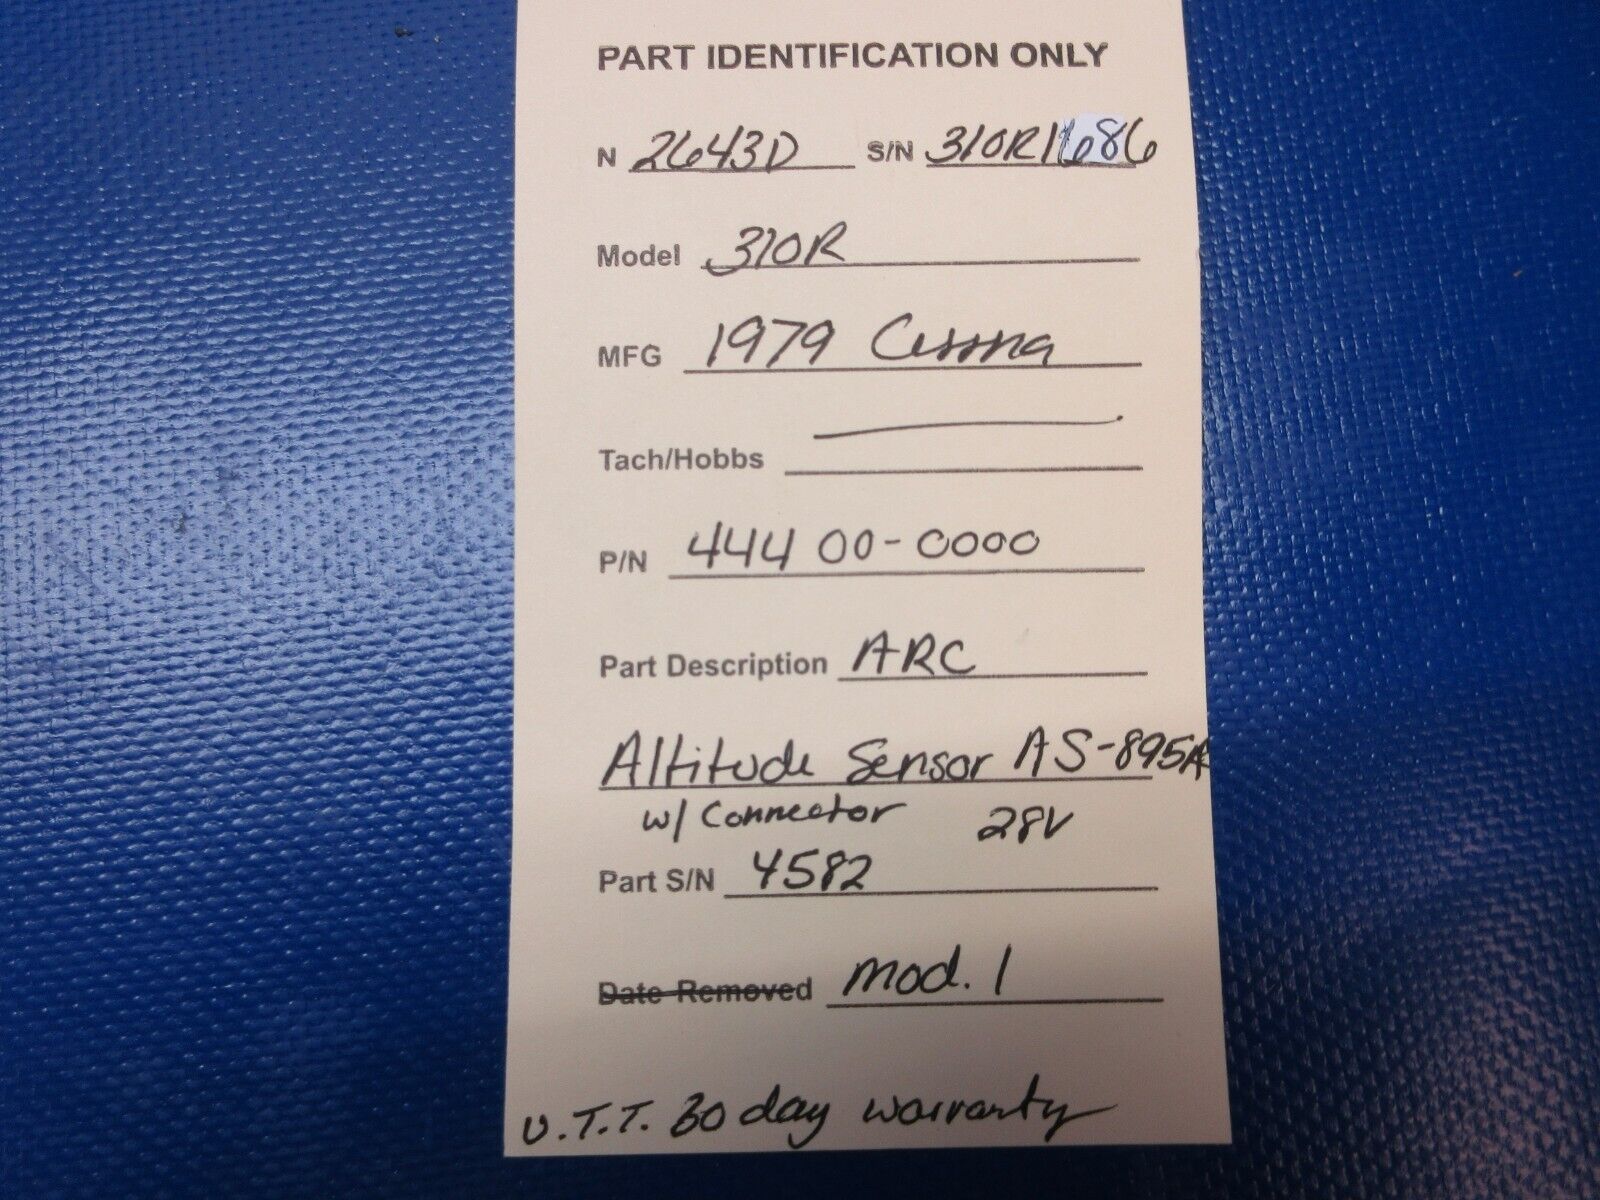 PART IDENTIFICATION ONLY
N 2643D S/N 310R1686
Model 310R
MFG 1979 Cessna
Tach/Hobbs
P/N 444 00-0000
Part Description ARC
Altitude Sensor AS-895A
w/ Connector 28V
Part S/N 4582
Date Removed Mod. 1
U.T.T. 30 day warranty